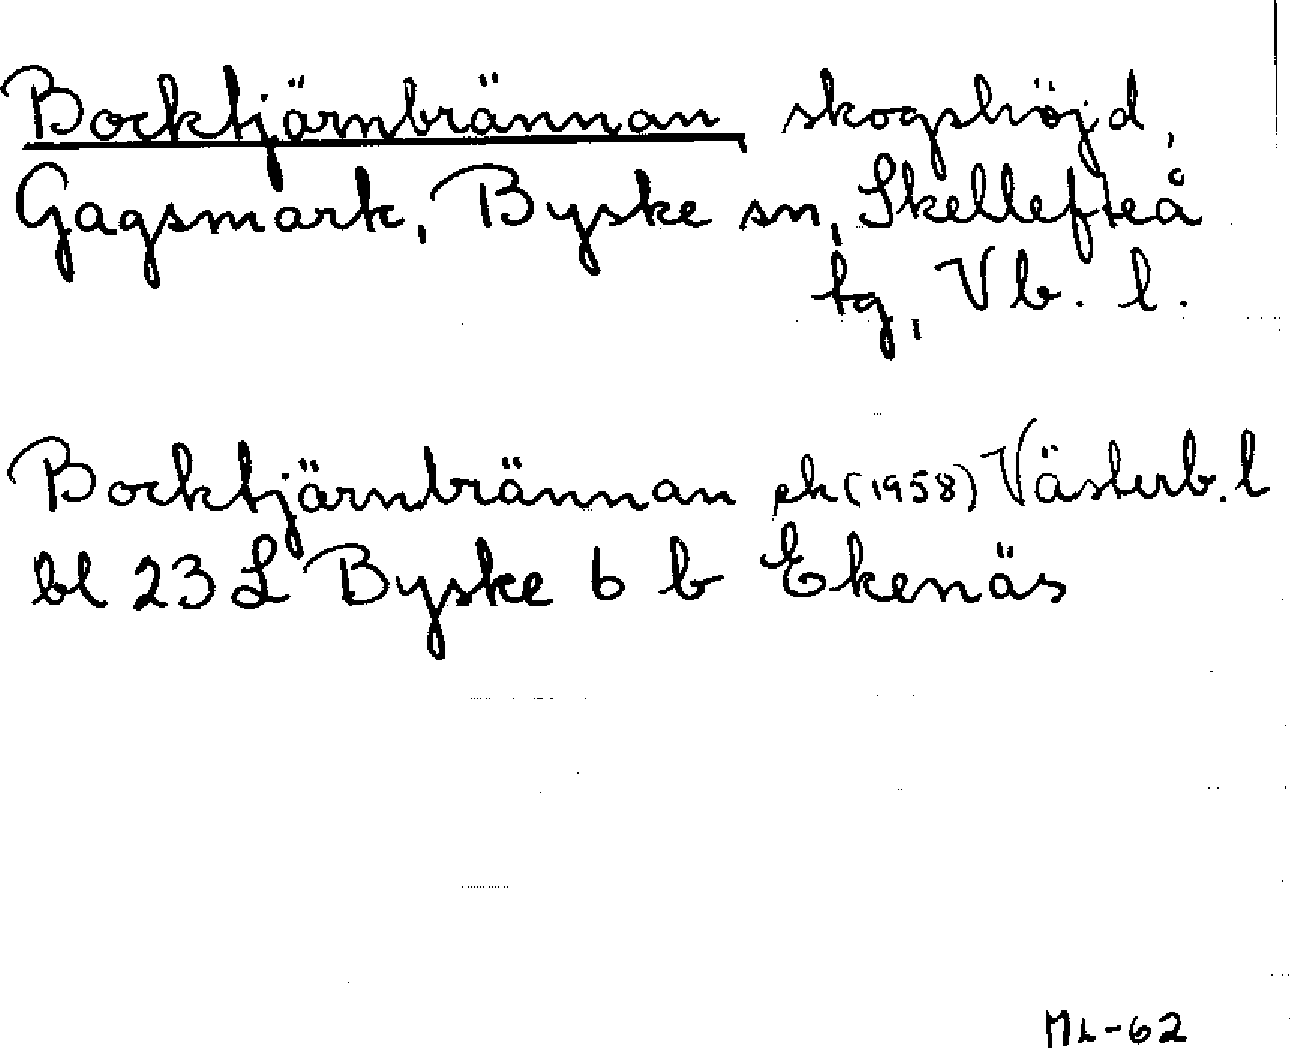 Bocktjärnbrännan, skogshöjd,
Gagsmark, Byske sn, Skellefteå
tg, Vb. l.
Bocktjärnbrännan ek (1958) Västerb. l
bl 23 L Byske 6 b Ekenäs
ML-62